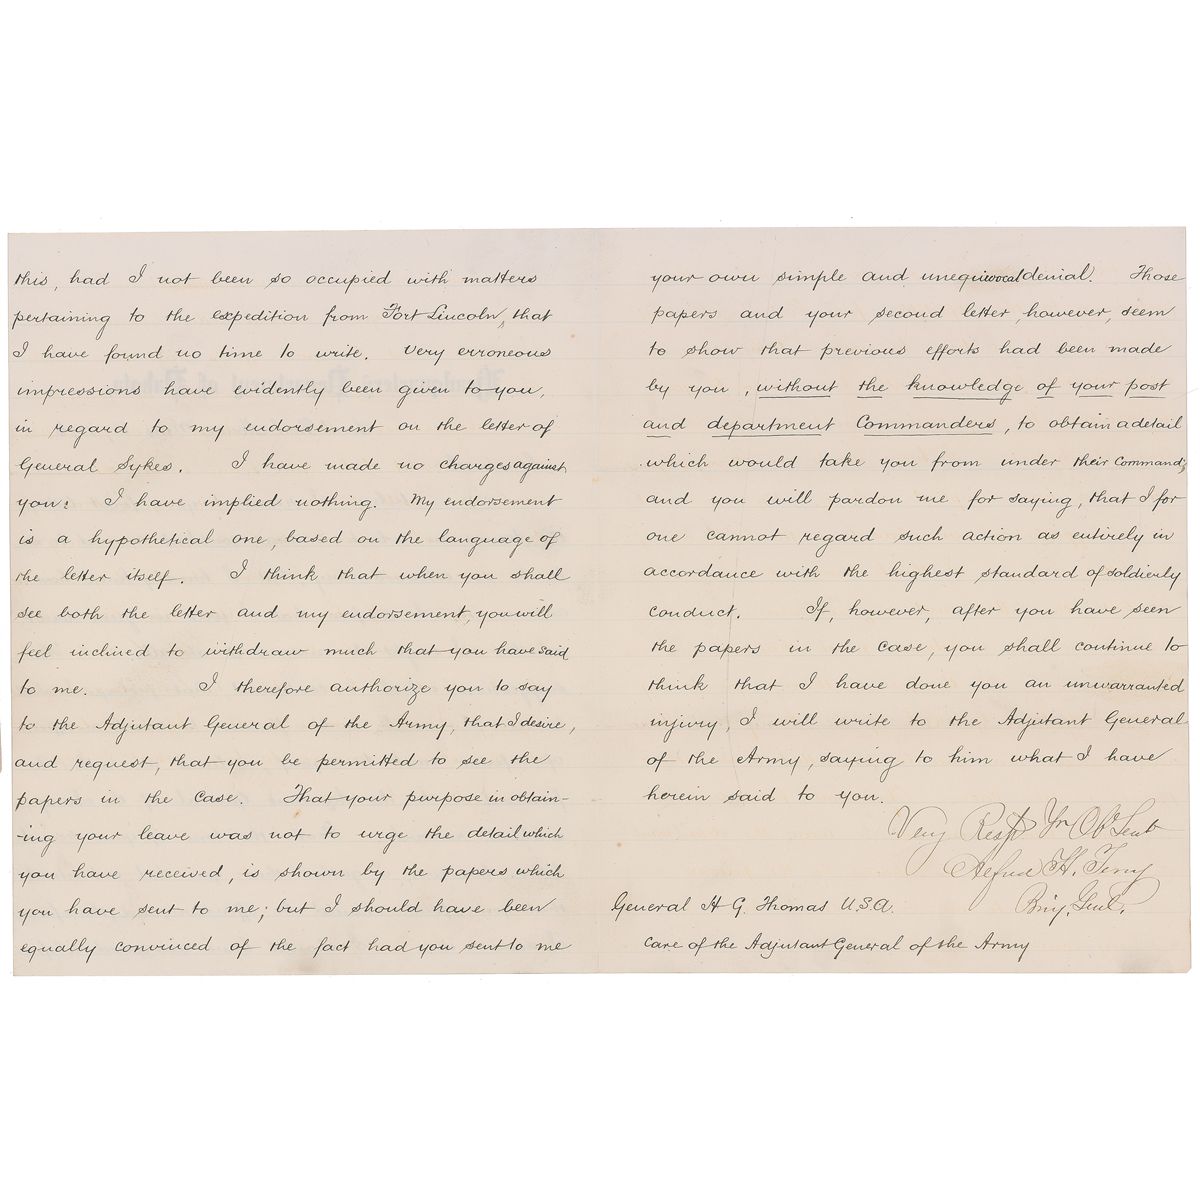 this, had I not been so occupied with matters
pertaining to the expedition from Fort Lincoln, that
I have found no time to write. Very erroneous
impressions have evidently been given to you,
in regard to my endorsement on the letter of
General Sykes. I have made no charges against
you: I have implied nothing. My endorsement
is a hypothetical one, based on the language of
the letter itself. I think that when you shall
see both the letter and my endorsement, you will
feel inclined to withdraw much that you have said
to me. I therefore authorize you to say
to the Adjutant General of the Army, that I desire,
and request, that you be permitted to see the
papers in the case. That your purpose in obtain-
-ing your leave was not to urge the detail which
you have received, is shown by the papers which
you have sent to me; but I should have been
equally convinced of the fact had you sent to me
your own simple and unequivocal denial. Those
papers and your second letter, however, seem
to show that previous efforts had been made
by you, without the knowledge of your post
and department Commanders, to obtain a detail
which would take you from under their Command;
and you will pardon me for saying, that I for
one cannot regard such action as entirely in
accordance with the highest standard of soldierly
conduct. If, however, after you have seen
the papers in the case, you shall continue to
think that I have done you an unwarranted
injury, I will write to the Adjutant General
of the Army, saying to him what I have
herein said to you.
Very Respy Yr Obt Servt
Alfred H. Terry
Brig. Genl.
General H G. Thomas U.S.A.
Care of the Adjutant General of the Army